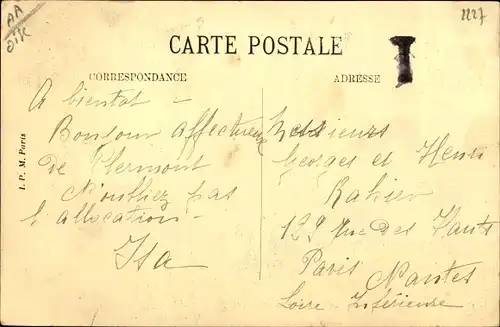 AA
2227
CARTE POSTALE
CORRESPONDANCE
ADRESSE
I. P. M. Paris
A bientot -
Bonjour affectueux
De Clermont
N'oubliez pas
l'allocation -
Isa
Messieurs
Georges et Henri
Rahier
129 Rue Des Hauts
Pavés Nantes
Loire-Inférieure